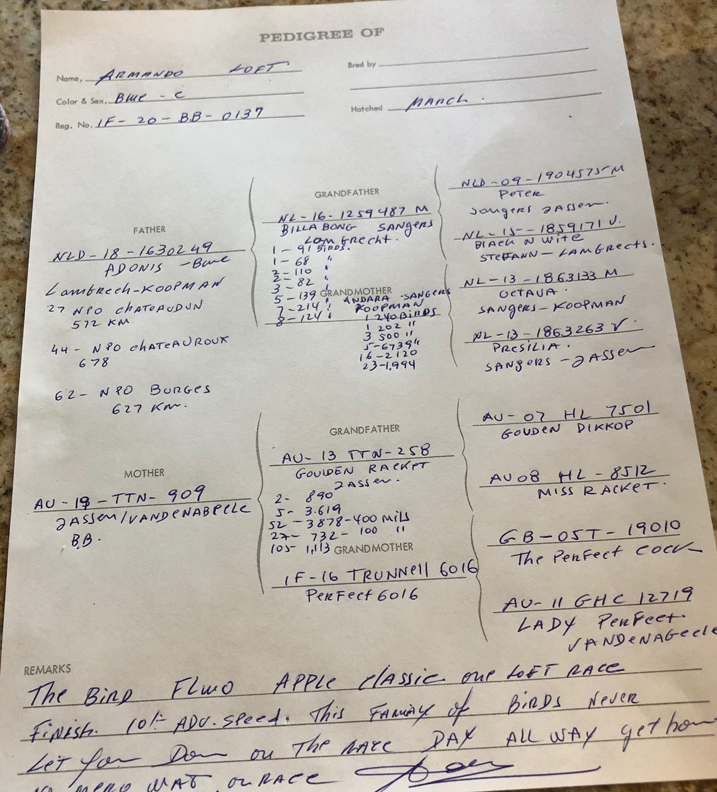 PEDIGREE OF
Name, ARMANDO LOFT
Bred by
Color & Sex, BLUE - C
Reg. No. IF-20-BB-0137
Hatched MARCH.
FATHER
NLD-18-1630249
ADONIS - Blue
Lambrech-KOOPMAN
27 NPO CHATEAUDUN
572 KM
44 - NPO CHATEAUROUX
678
62 - NPO BURGES
627 KM.
MOTHER
AU-19-TTN-909
JASSEN/VANDENABEELE
BB.
GRANDFATHER
NL-16-1259487 M
BILLABONG SANGERS
LAMBRECHT.
1 - 91 BIRDS.
1 - 68 "
2 - 110 "
3 - 82 "
5 - 139
7 - 214 "
8 - 124 "
GRANDMOTHER
ANDARA - SANGERS
KOOPMAN
1 240 BIRDS
1 202 "
3 500 "
5 - 6739 "
16 - 2120
23 - 1,994
GRANDFATHER
AU-13 TTN-258
GOULDEN RACKET
JASSEN.
2 - 890
5 - 3.619
52 - 3878 - 400 MILS
27 - 732 - 100 "
105 - 1,113
GRANDMOTHER
IF-16 TRUNNELL 6016
PERFECT 6016
NLD-09-1904575 M
PETER
SANGERS JASSEN.
NL-15-1859171 V.
BLACK N WITE
STEFANN - LAMBRECTS.
NL-13-1863133 M
OCTAVA.
SANGERS - KOOPMAN
NL-13-1863263 V.
PRESILIA.
SANGERS - JASSEN
AU-07 HL 7501
GOUDEN DIKKOP
AU 08 HL - 8512
MISS RACKET.
GB-05T-19010
The PERFECT COCK
AU-11 GHC 12719
LADY PERFECT.
VANDENAGEELE
REMARKS
The BIRD FLWO APPLE CLASSIC ONE LOFT RACE
FINISH. 10th ADV. SPEED. This FAMALY of BIRDS Never
LET You DOWN ON The RACE DAY ALL WAY get hom
WAT. ON RACE